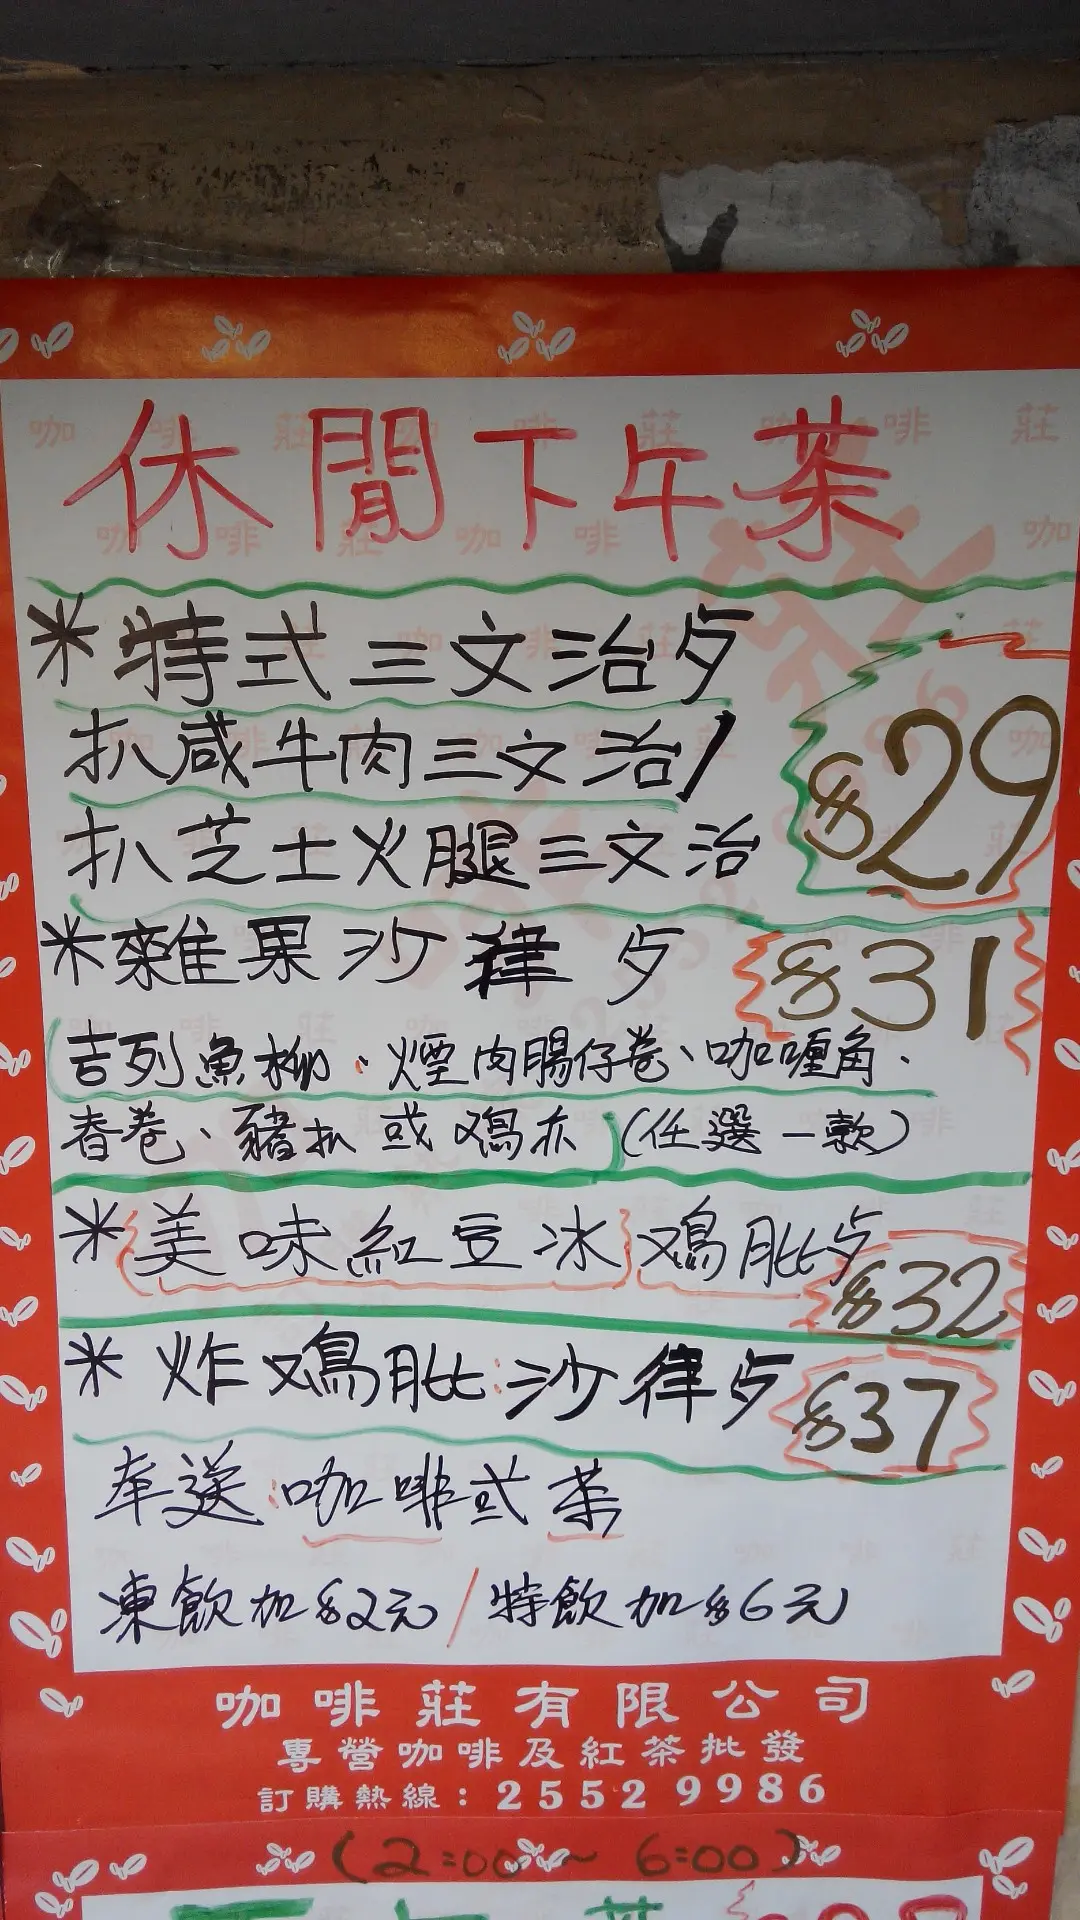 休閒下午茶
*特式三文治歺
扒咸牛肉三文治/
$29
扒芝士火腿三文治
*雜果沙律歺 $31
吉列魚柳、煙肉腸仔卷、咖喱角、
春卷、豬扒或鷄亦(任選一款)
*美味紅豆冰 鷄髀歺 $32
*炸鷄髀:沙律歺 $37
奉送:咖啡或茶
凍飲加$2元/特飲加$6元
咖啡莊有限公司
專營咖啡及紅茶批發
訂購熱線:2552 9986
(2:00~6:00)